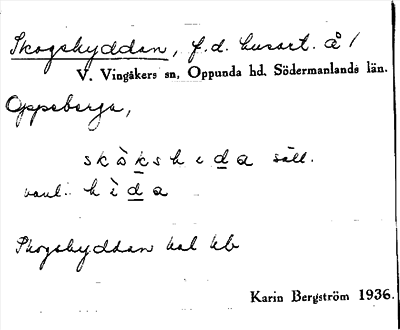 Skogshyddan, f.d. husart. å /
V. Vingåkers sn, Oppunda hd. Södermanlands län.
Oppeberga,
skò̀kshida säll.
vanl. hìda
Skogshyddan kal kb
Karin Bergström 1936.